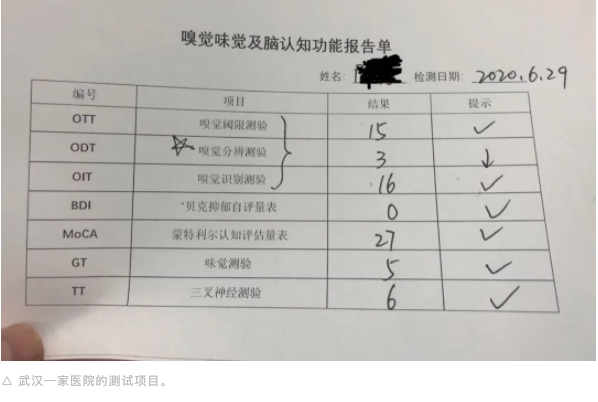 嗅觉味觉及脑认知功能报告单
姓名: 检测日期: 2020.6.29
编号 项目 结果 提示
OTT 嗅觉阈限测验 15 ✓
ODT ☆嗅觉分辨测验 3 ↓
OIT 嗅觉识别测验 16 ✓
BDI 贝克抑郁自评量表 0 ✓
MoCA 蒙特利尔认知评估量表 27 ✓
GT 味觉测验 5 ✓
TT 三叉神经测验 6 ✓
△ 武汉一家医院的测试项目。